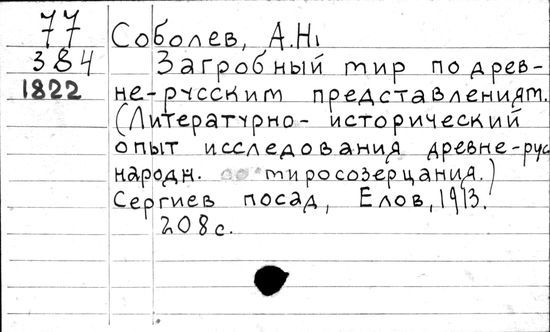 77
384
1822
Соболев, А.Н.
Загробный мир по древ-
не-русским представлениям.
(Литературно-исторический
опыт исследования древне-рус
народн. миросозерцания.)
Сергиев посад, Елов, 1913.
208с.